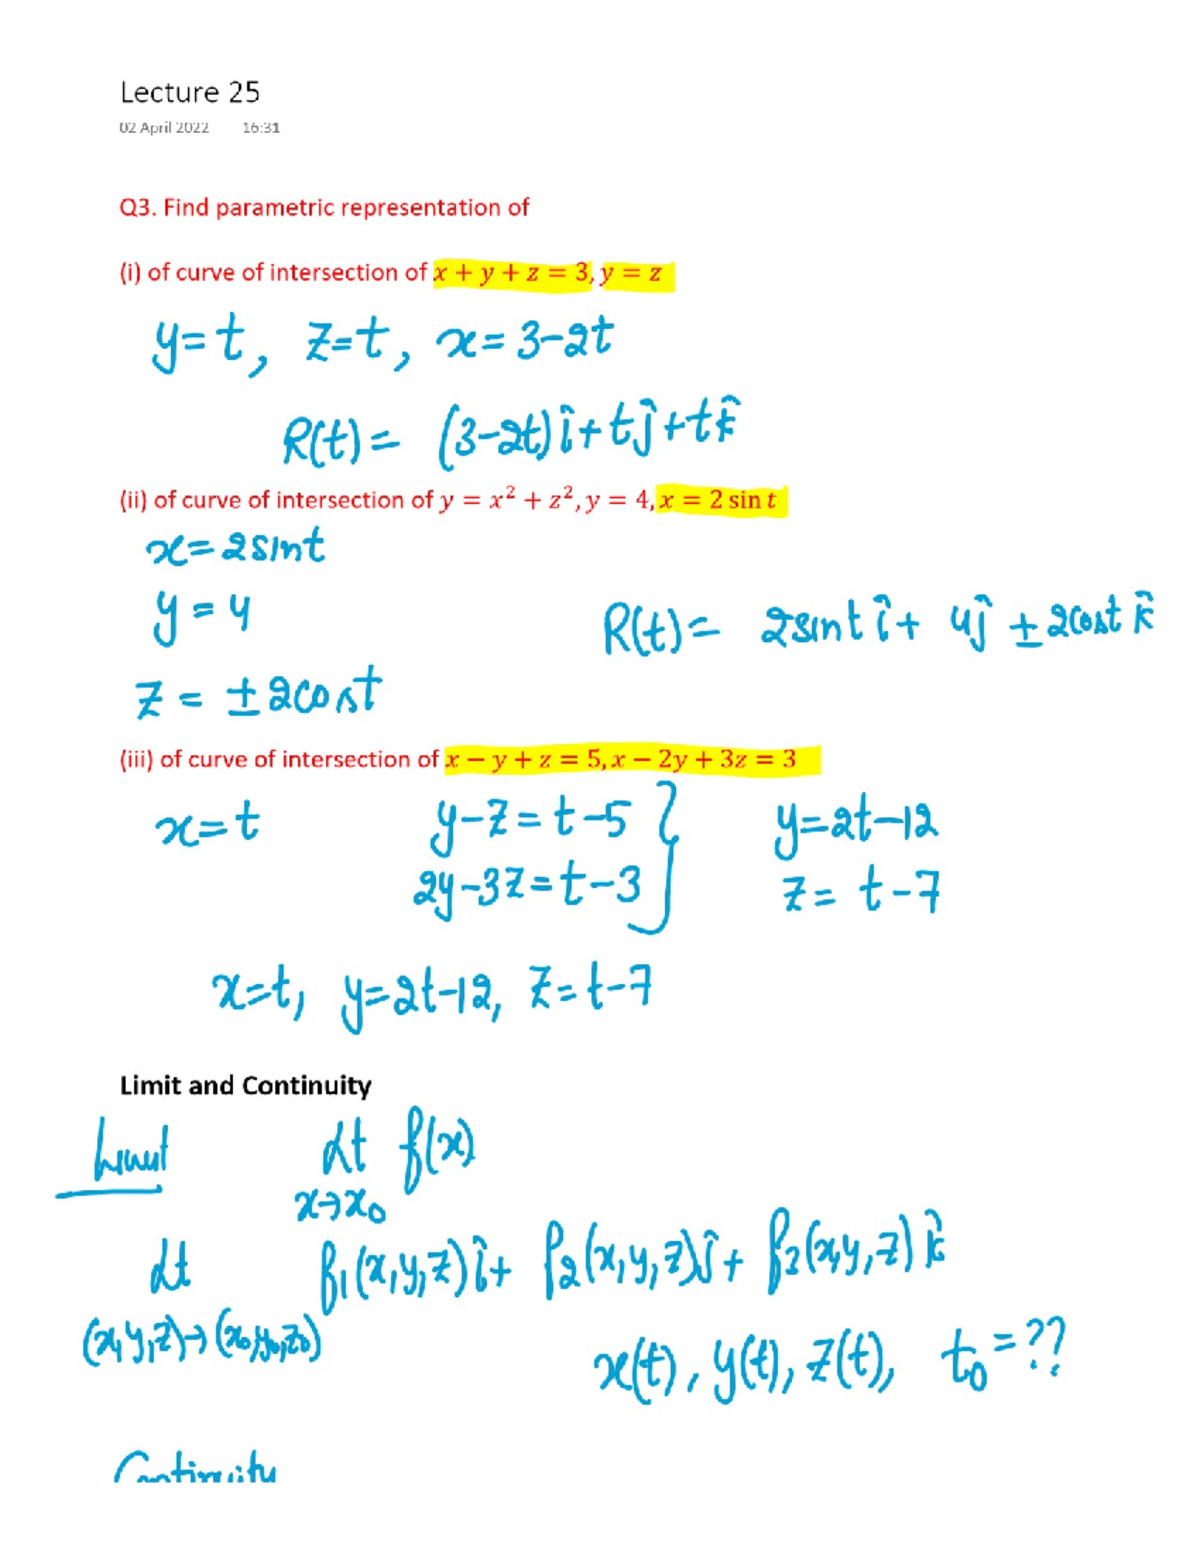 Lecture 25
02 April 2022 16:31
Q3. Find parametric representation of
(i) of curve of intersection of x + y + z = 3, y = z
y=t, z=t, x=3-2t
R(t) = (3-2t)î+tĵ+tk̂
(ii) of curve of intersection of y = x² + z², y = 4, x = 2 sin t
x=2sint
y=4
R(t)= 2sint î+ 4ĵ ±2cost k̂
z = ±2cost
(iii) of curve of intersection of x − y + z = 5, x − 2y + 3z = 3
x=t y-z=t-5 } y=2t-12
2y-3z=t-3 z= t-7
x=t, y=2t-12, z=t-7
Limit and Continuity
Limit Lt f(x)
x→x₀
Lt f₁(x,y,z)î+ f₂(x,y,z)ĵ+ f₃(x,y,z)k̂
(x,y,z)→(x₀,y₀,z₀)
x(t), y(t), z(t), t₀=??
Continuity